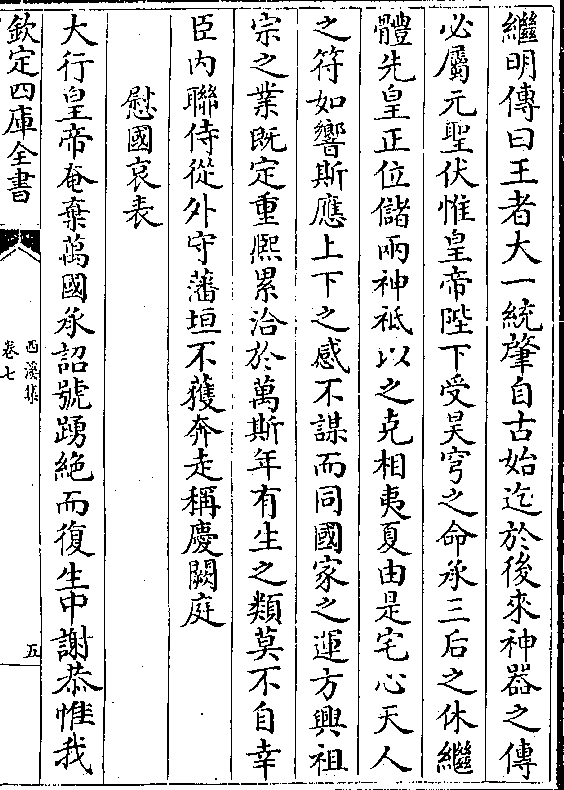 繼明傳曰王者大一統肇自古始迄於後來神器之傳
必屬元聖伏惟皇帝陛下受昊穹之命承三后之休繼
體先皇正位儲兩神祗以之克相夷夏由是宅心天人
之符如響斯應上下之感不謀而同國家之運方興祖
宗之業既定重熈累洽於萬斯年有生之類莫不自幸
臣内聯侍從外守藩垣不獲奔走稱慶闕庭
慰國哀表
大行皇帝奄棄萬國承詔號踴絶而復生中謝恭惟我
欽定四庫全書
西溪集
卷七
五